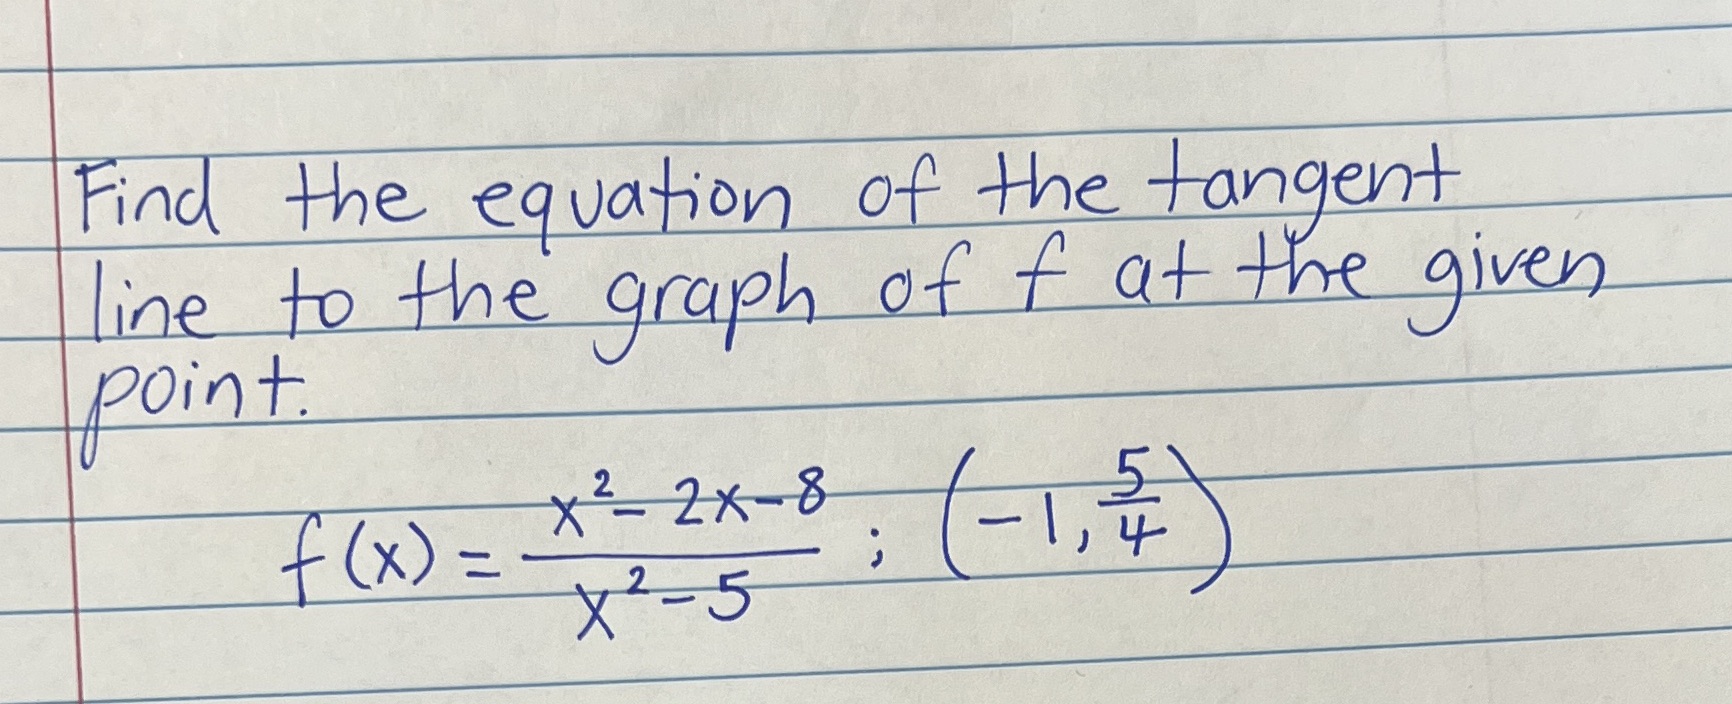 Find the equation of the tangent
line to the graph of f at the given
point.
f(x) = \frac{x^2 - 2x - 8}{x^2 - 5} ; (-1, \frac{5}{4})